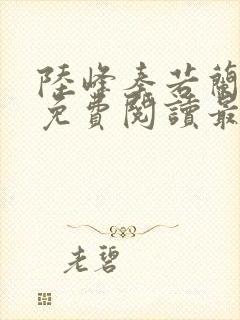 陸峰秦若蘭
免費閱讀最
老碧